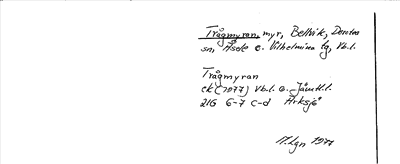 Trågmyran, myr, Bellvik, Dorotea
sn, Åsele o. Vilhelmina tg, Vb.l.
Trågmyran
ek (1977) Vb.l. o. Jämtl.l.
21G 6-7 c-d Arksjö
M.Lgn 1977